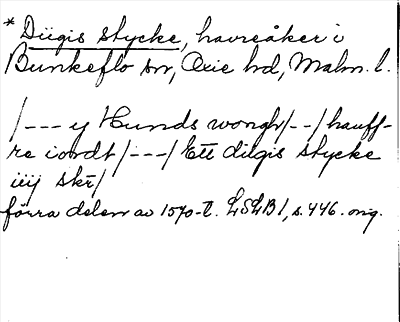 * Diigis stycke, havreåker i
Bunkeflo sn, Oxie hd, Malm. l.
/--- y Hunds wongh/--/hauff-
re iordt/---/Ett diigis stycke
iiij skr/
förra delen av 1570-t. LSLB 1, s. 446. orig.